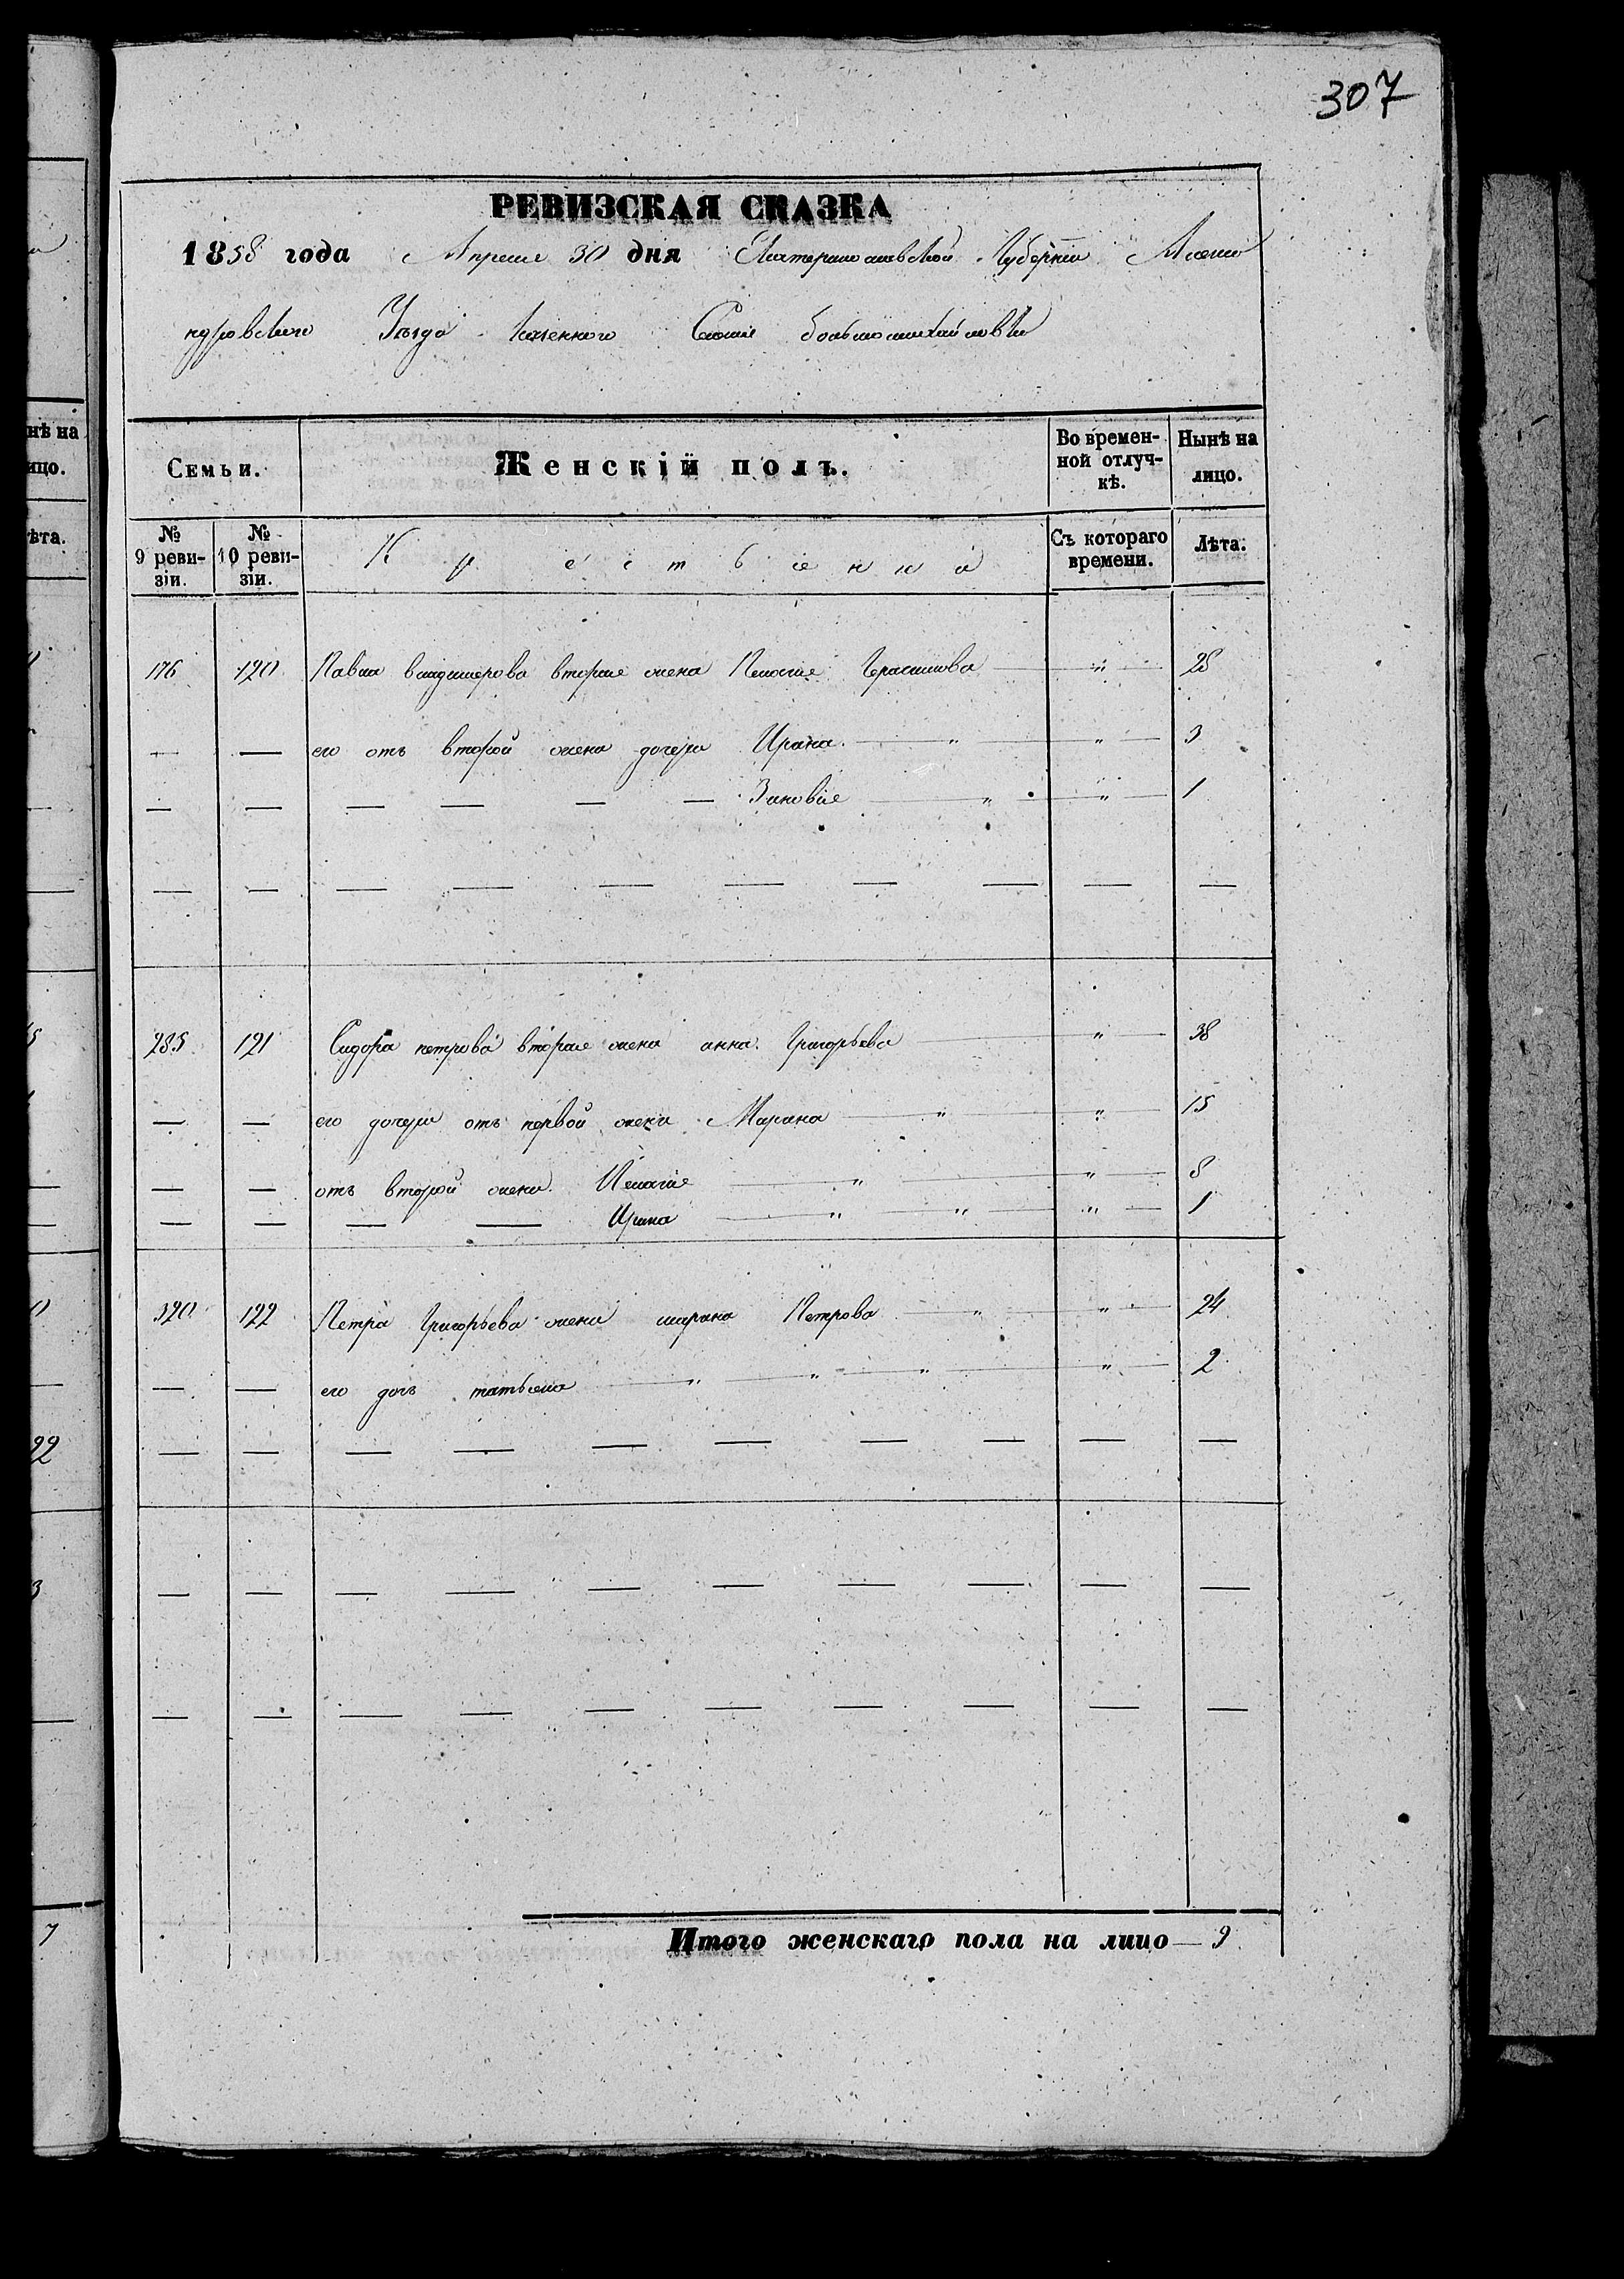 307
РЕВИЗСКАЯ СКАЗКА
1858 года Апреля 30 дня Екатеринославской Губернии Алекса
ндровского Уезда казенного Селения большомихайловки
Семьи. Женскій полъ. Во времен-ной отлуч-кѣ. Нынѣ на лицо.
№ 9 реви-зіи. № 10 реви-зіи. Крестьяне Съ котораго времени. Лѣта.
176 120 Павла владимерова вторая жена Пелагия Герасимова — " — 28
— — его отъ второй жены дочери Ирина — " — " — 3
— — — — — — Зиновия — " — " — 1
— — — — — — — — — —
285 121 Сидора петрова вторая жена анна Григорьева — " — 38
— — его дочери отъ первой жены Марина — " — " — 15
— — отъ второй жены Пелагия — " — " — 8
— — — — Ирина — " — " — " — 1
320 122 Петра Григорьева жена марина Петрова — " — " — 24
— — его дочь татьяна — " — " — " — " — 2
— — — — — — — — — —
— — — — — — — — — —
— — — — — — — — — —
Итого женскаго пола на лицо — 9
нѣ на
ицо.
ѣта.
22
3
7